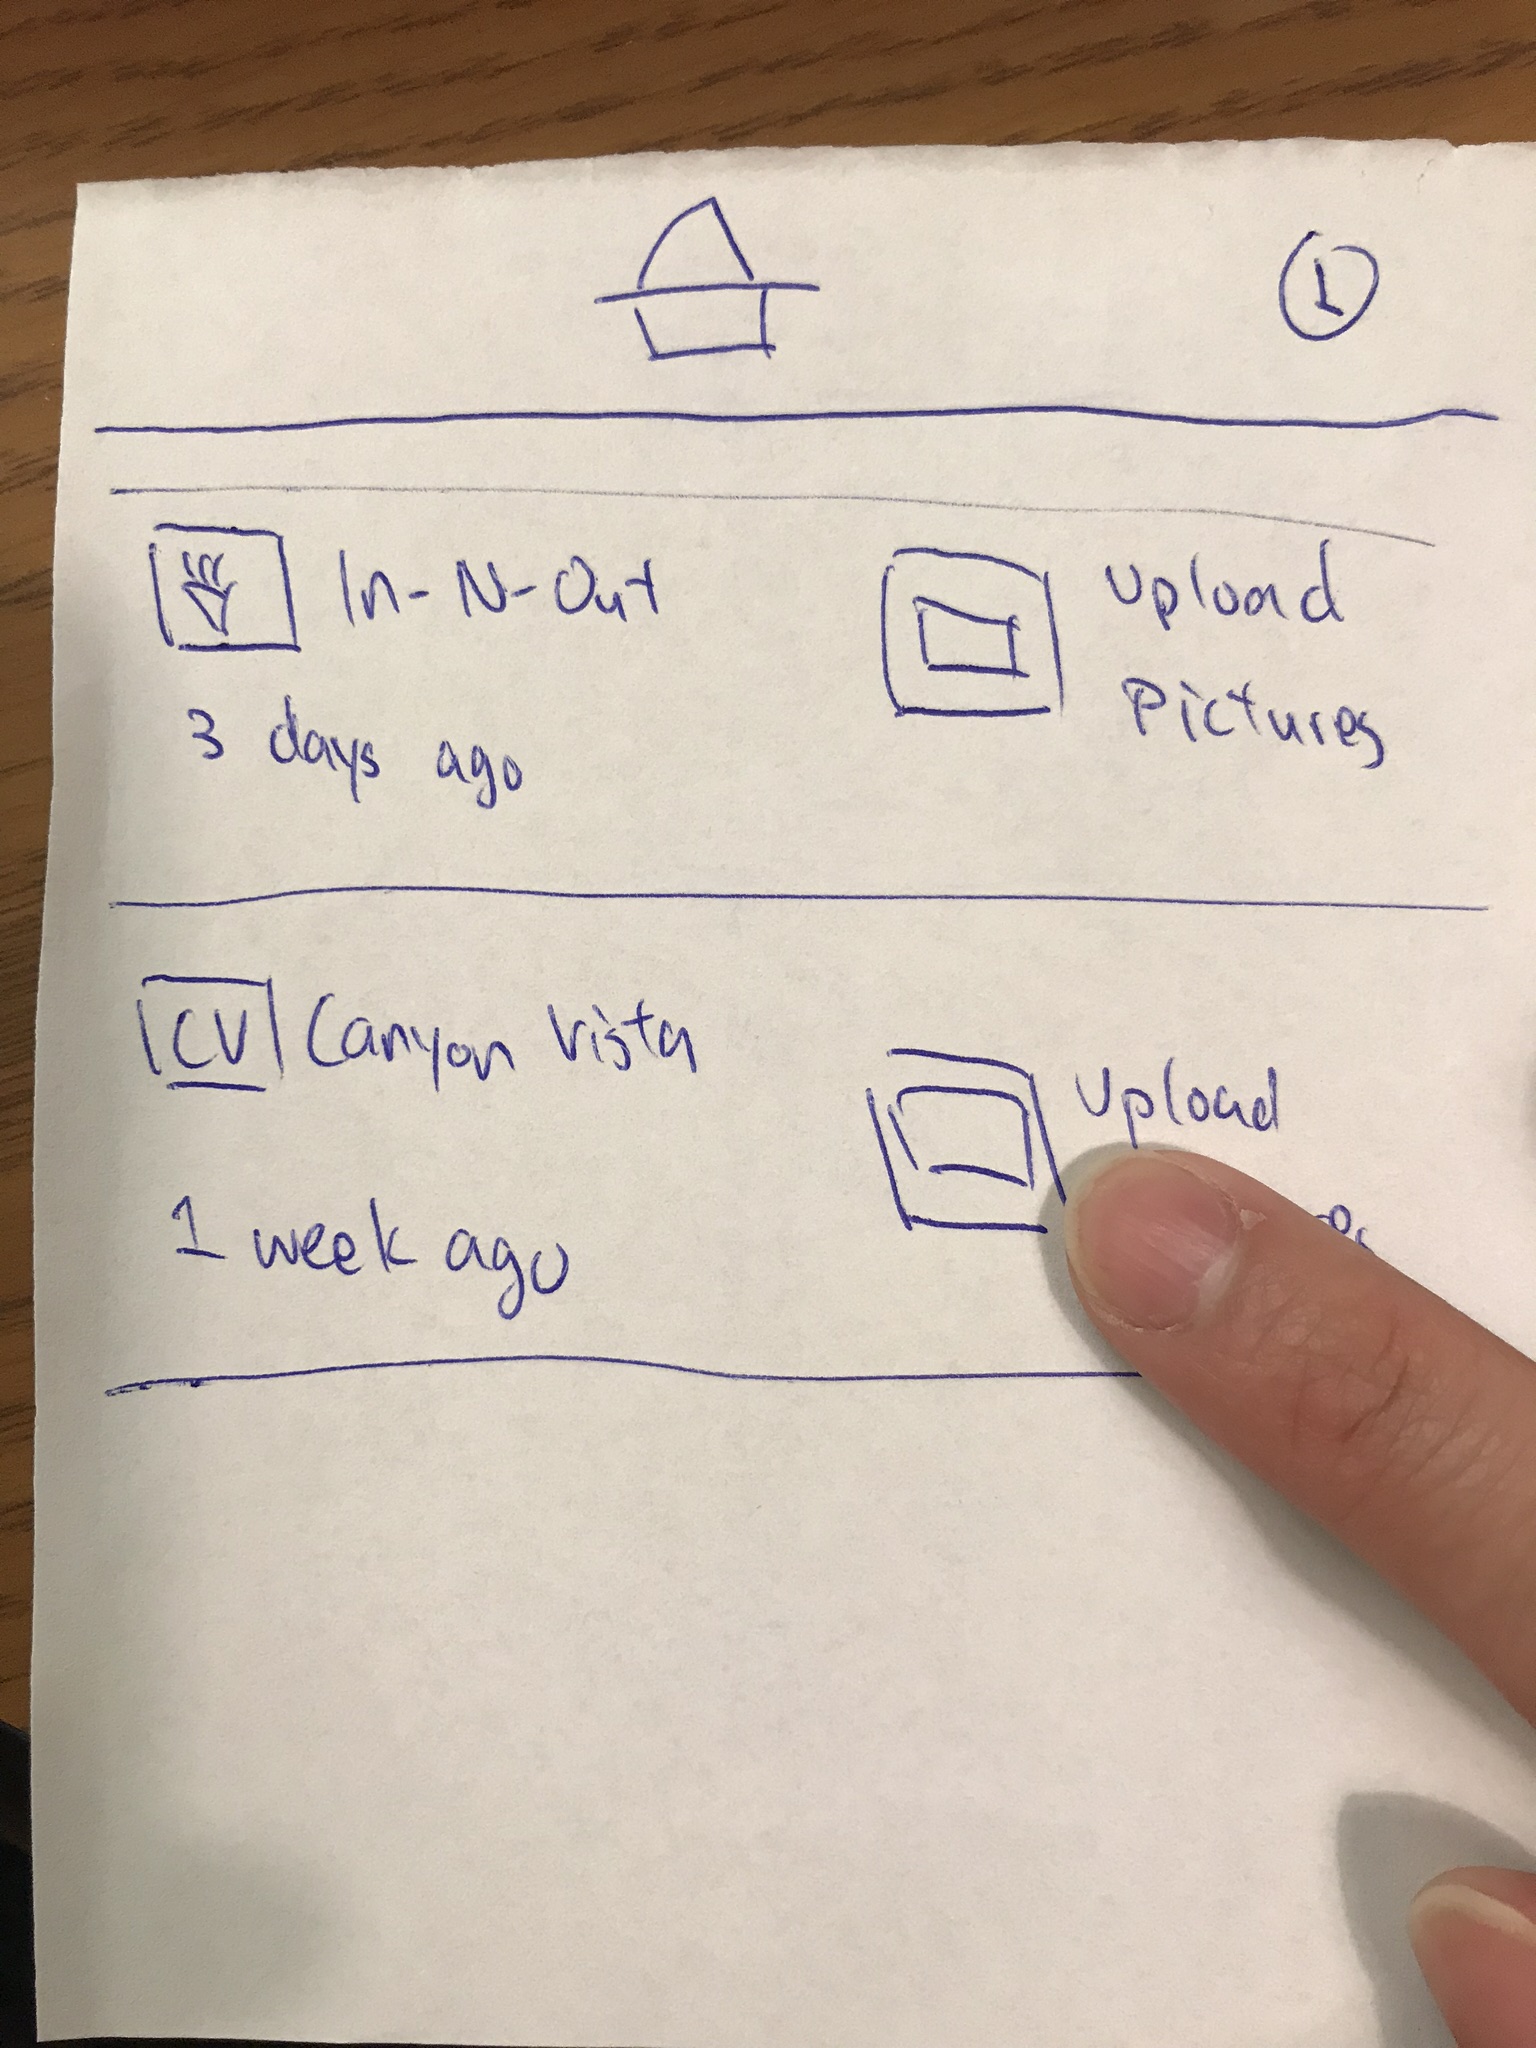 1
In-N-Out
3 days ago
Upload
Pictures
CV Canyon Vista
1 week ago
Upload